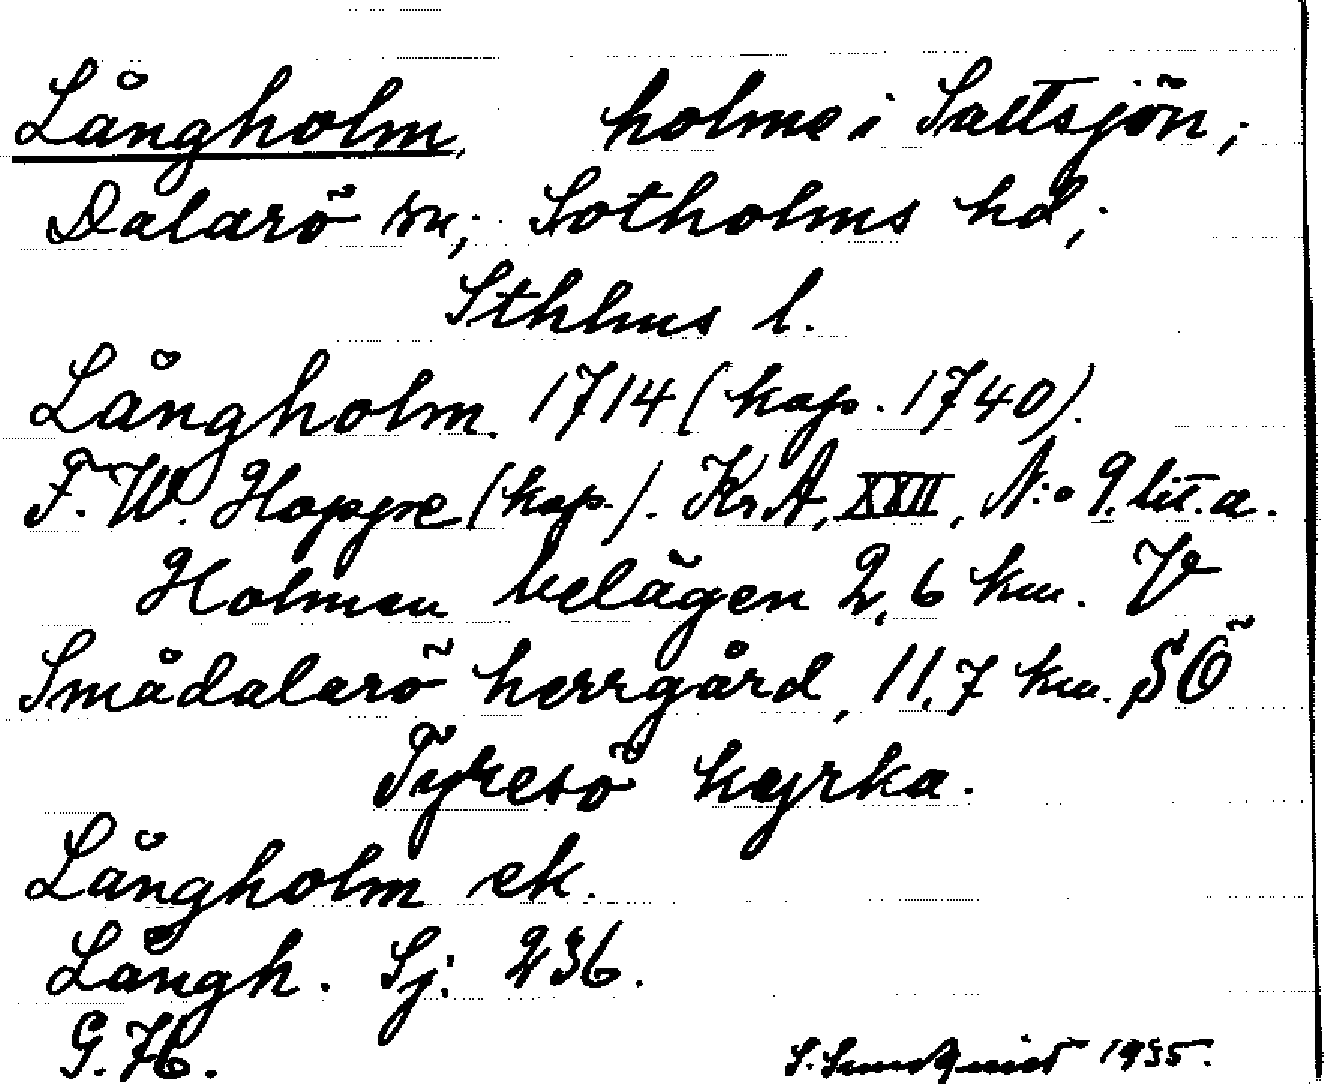 Långholm, holme i Saltsjön,;
Dalarö sn,; Sotholms hd,;
Sthlms l.
Långholm. 1714 (kop. 1740).
F. W. Hoppe (kop.). Kr A, XXII, N:o 9. lit. a.
Holmen belägen 2,6 km. V
Smådalarö herrgård, 11,7 km. SÖ
Tyresö kyrka.
Långholm ek.
Långh. Sj: 236.
G. 76.
S. Sundquist 1935.